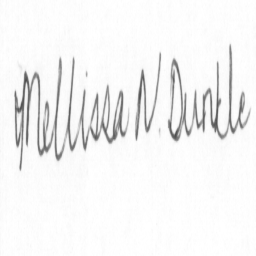 Mellissa N. Dunkle